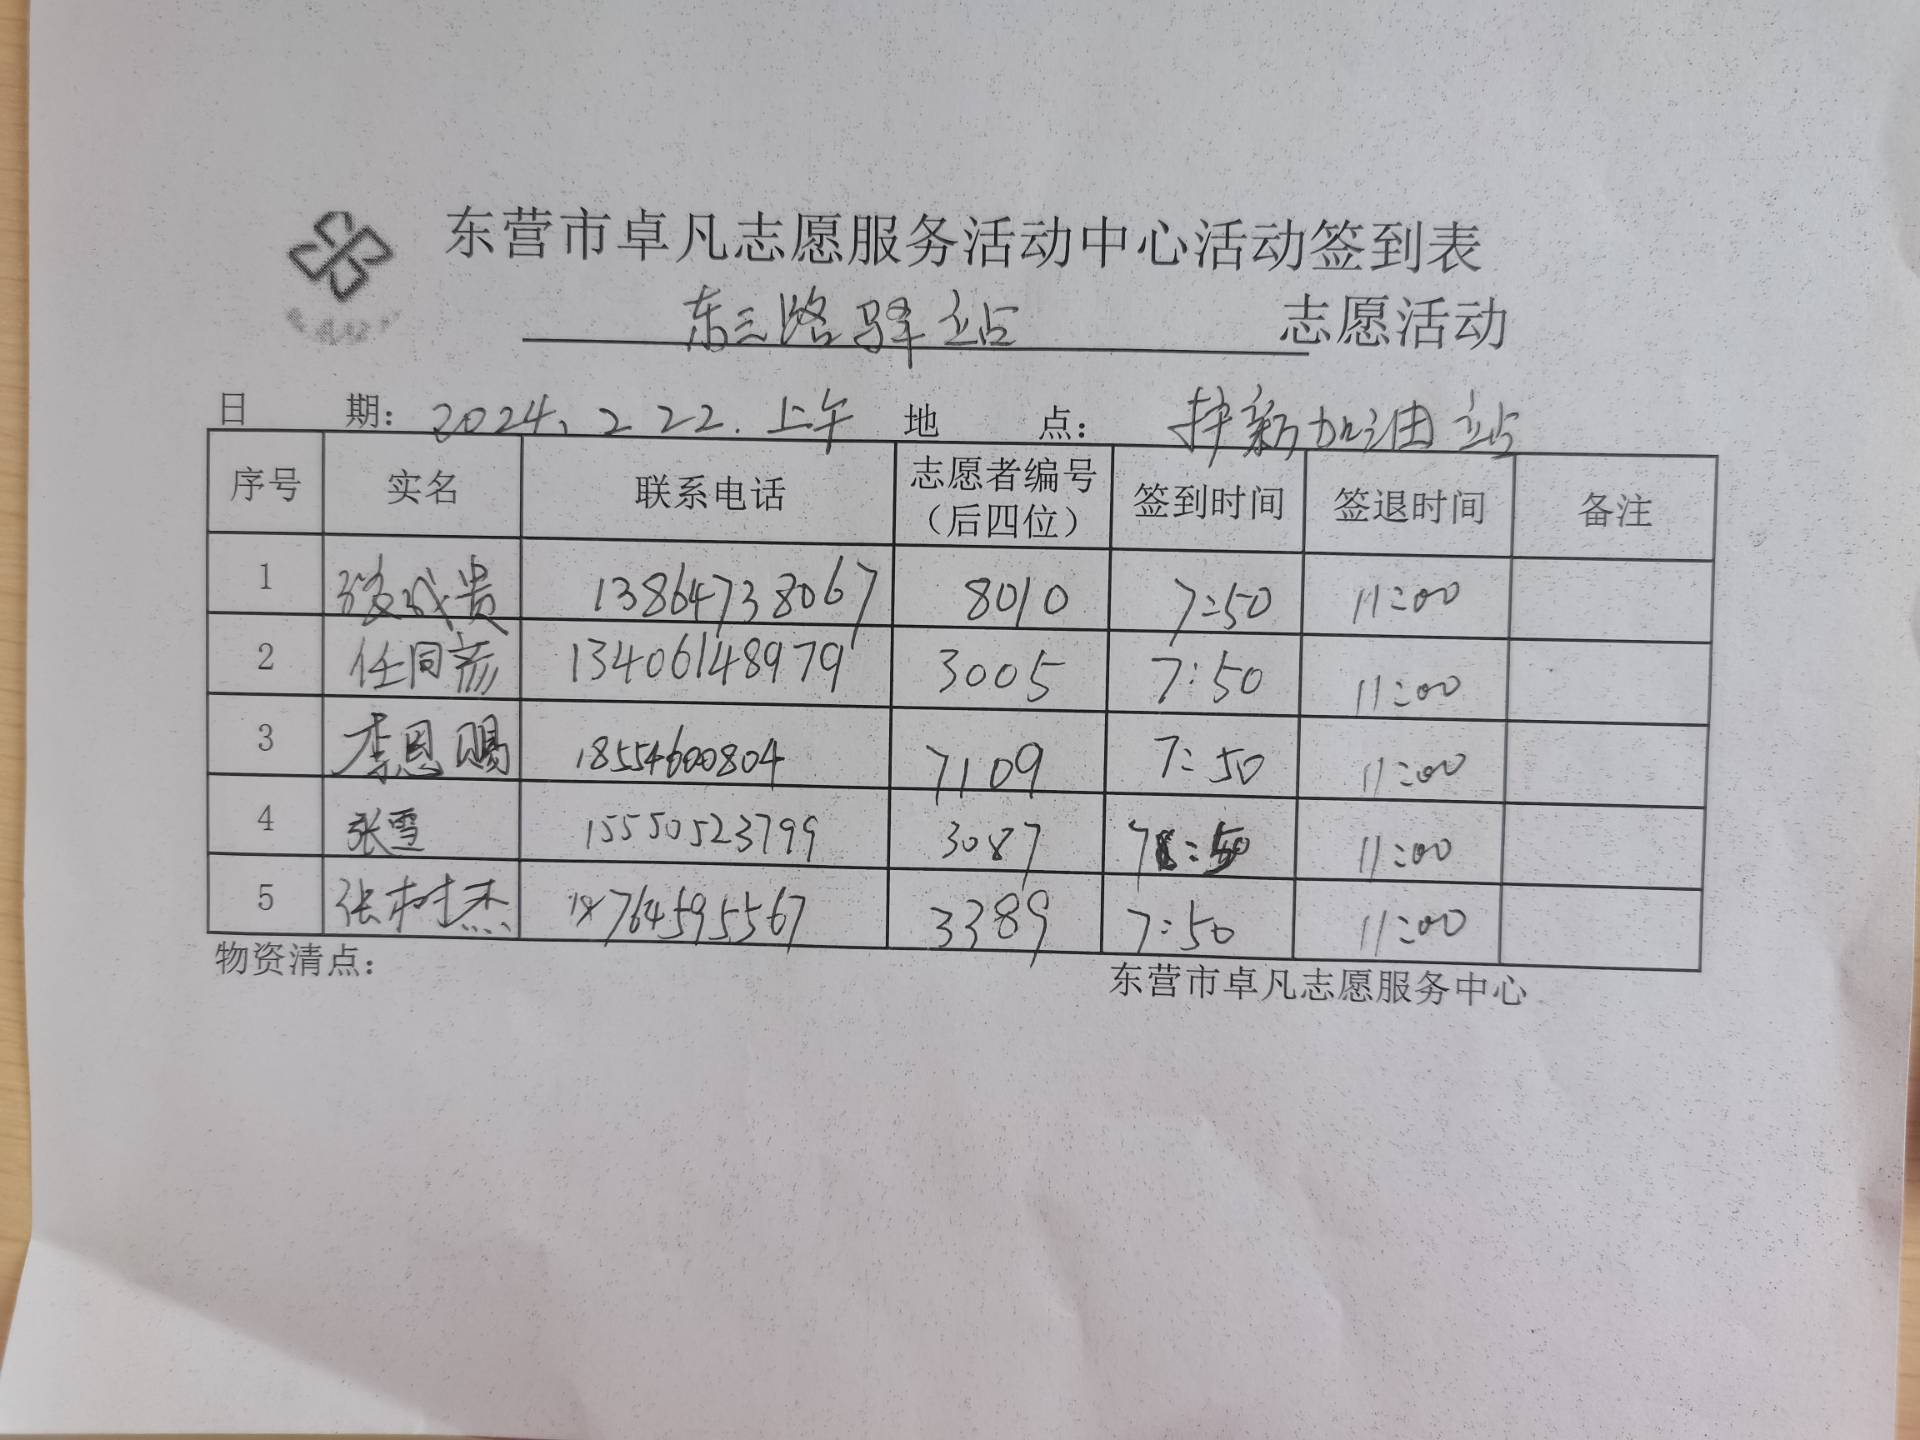 东营市卓凡志愿服务活动中心活动签到表
东三路驿站 志愿活动
日 期： 2024、2 22. 上午 地 点： 护新加油站
序号 实名 联系电话 志愿者编号（后四位） 签到时间 签退时间 备注
1 成贵 13864738067 8010 7:50 11:00
2 任同彦 13406148979 3005 7:50 11:00
3 李恩赐 18554600804 7109 7:50 11:00
4 张雪 15550523799 3087 7:50 11:00
5 张树杰 18764595567 3389 7:50 11:00
物资清点： 东营市卓凡志愿服务中心